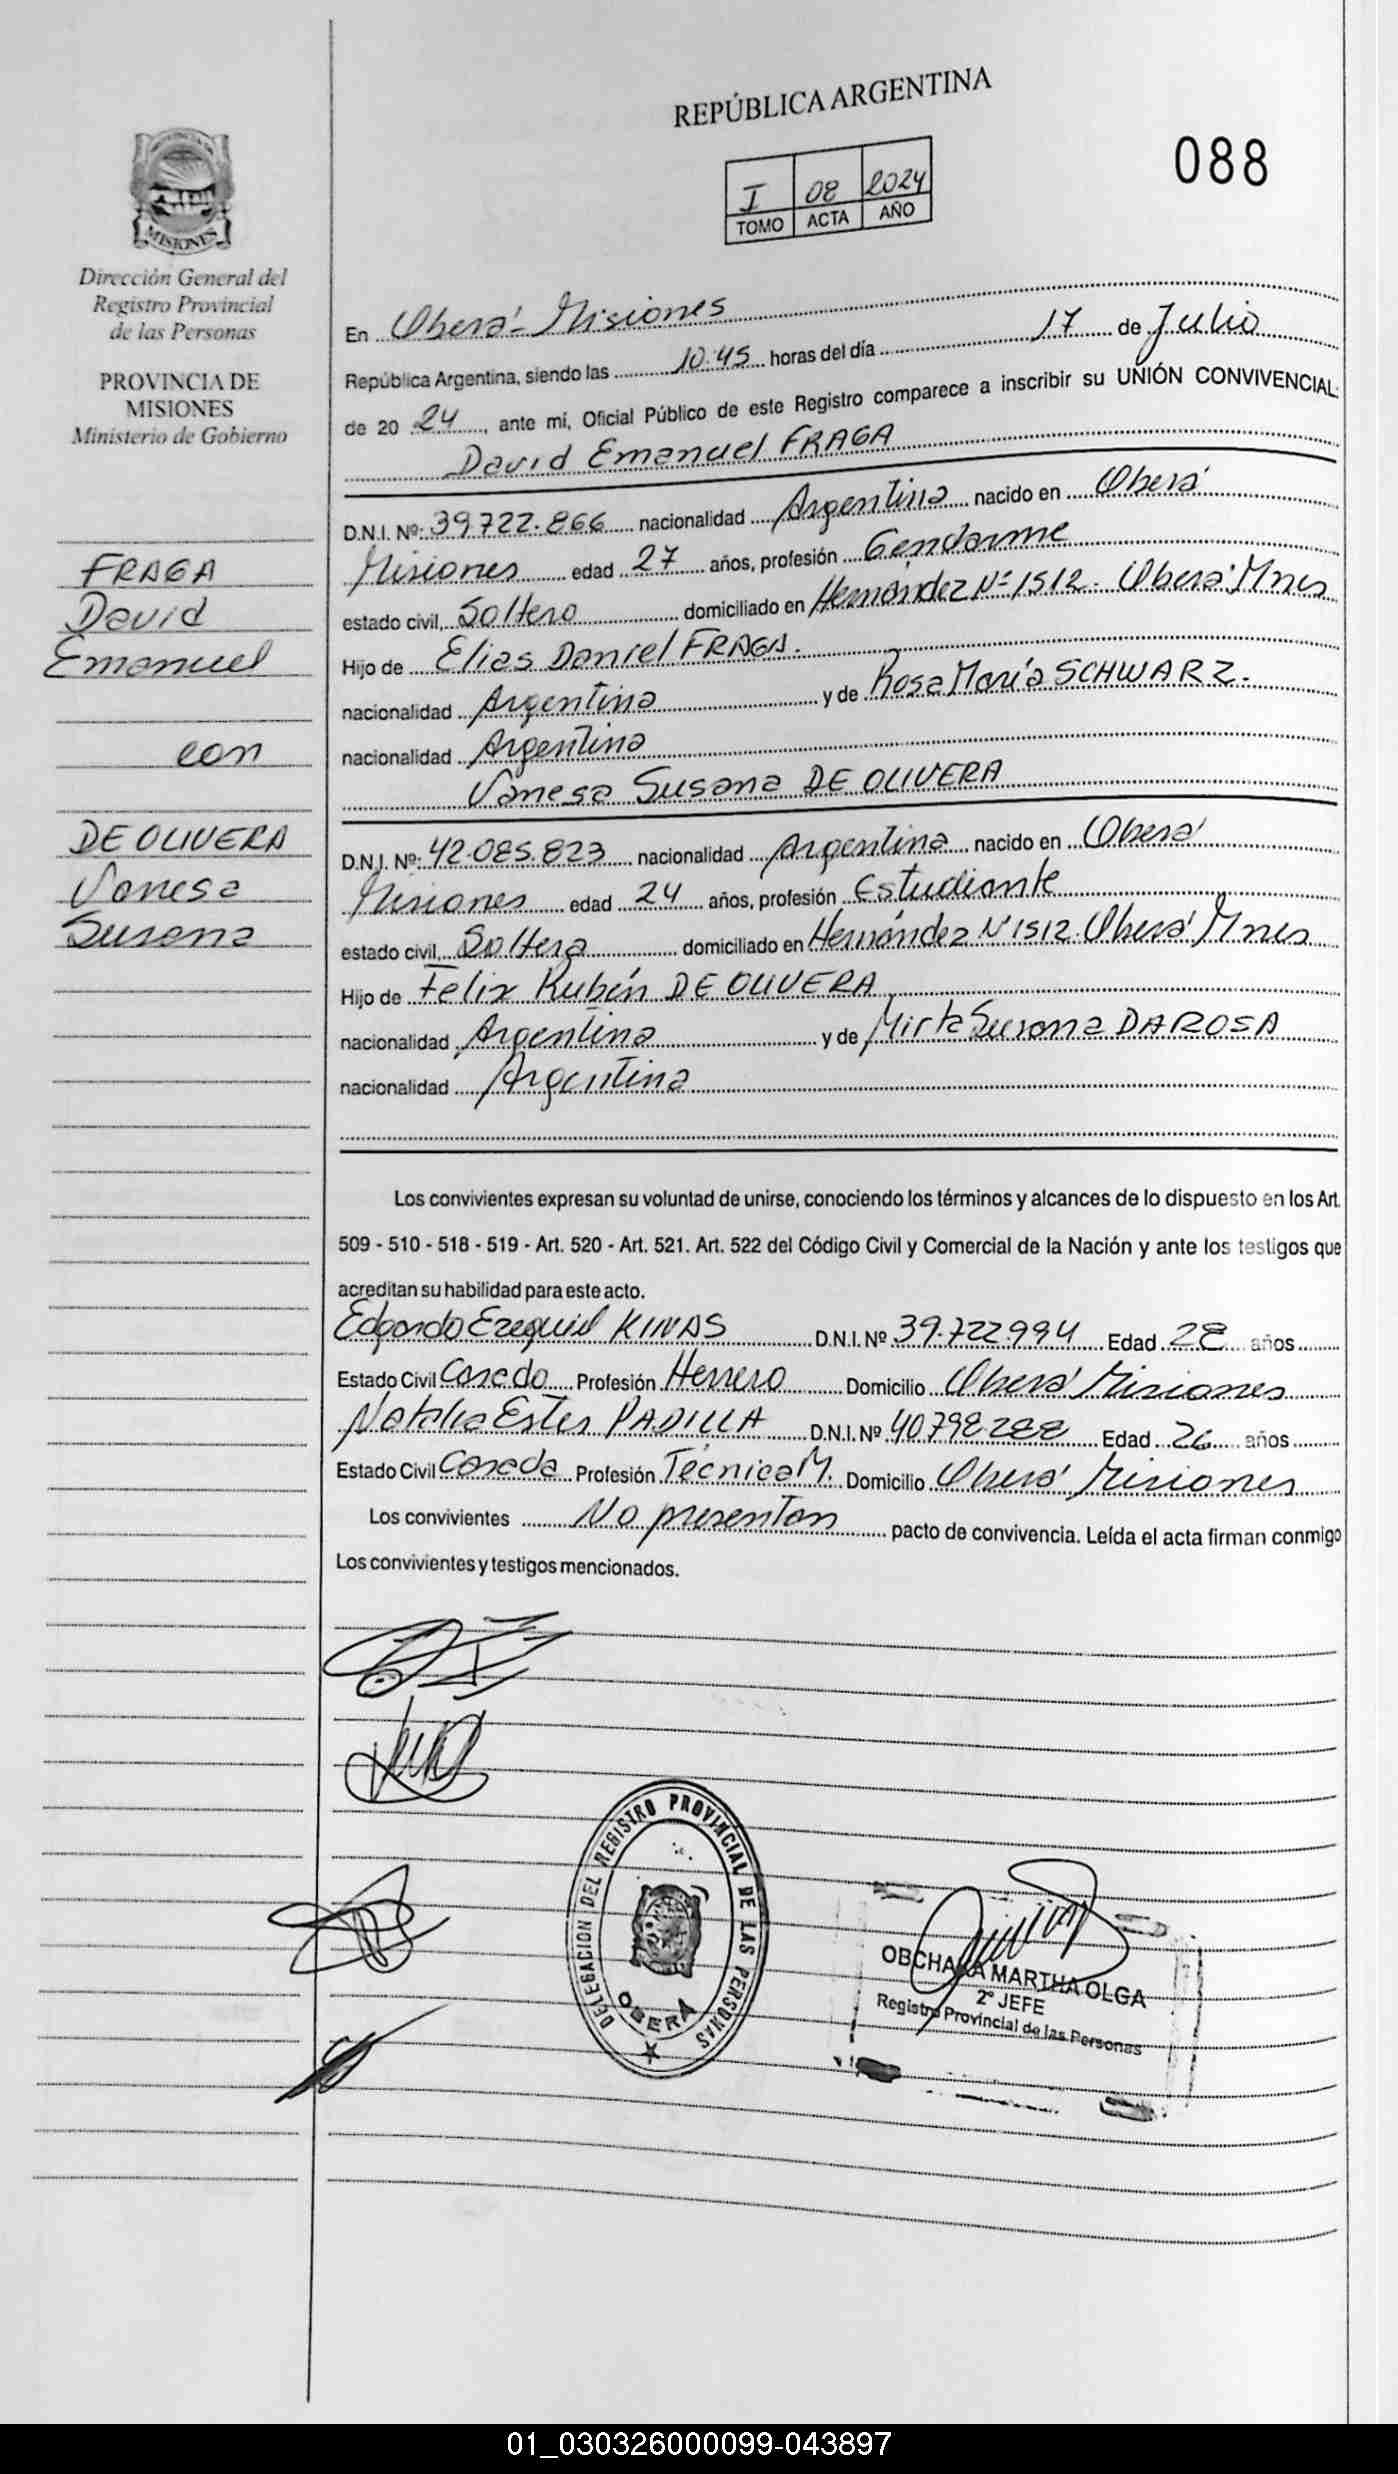 REPÚBLICA ARGENTINA
088
I 08 2024
TOMO ACTA AÑO
MISIONES
Dirección General del
Registro Provincial
de las Personas
PROVINCIA DE
MISIONES
Ministerio de Gobierno
FRAGA
David
Emanuel
con
DE OLIVERA
Vanesa
Susana
En Oberá - Misiones
República Argentina, siendo las 10:45 horas del día 17 de Julio
de 20 24, ante mí, Oficial Público de este Registro comparece a inscribir su UNIÓN CONVIVENCIAL:
David Emanuel FRAGA
D.N.I. Nº: 39.722.866 nacionalidad Argentina nacido en Oberá
Misiones edad 27 años, profesión Gendarme
estado civil, Soltero domiciliado en Hernández Nº 1512. Oberá Mnes
Hijo de Elias Daniel FRAGA.
nacionalidad Argentina y de Rosa María SCHWARZ.
nacionalidad Argentina
Vanesa Susana DE OLIVERA
D.N.I. Nº: 42.085.823 nacionalidad Argentina nacido en Oberá
Misiones edad 24 años, profesión Estudiante
estado civil, Soltera domiciliado en Hernández Nº 1512. Oberá Mnes
Hijo de Felix Rubén DE OLIVERA
nacionalidad Argentina y de Mirta Susana DA ROSA
nacionalidad Argentina
Los convivientes expresan su voluntad de unirse, conociendo los términos y alcances de lo dispuesto en los Art.
509 - 510 - 518 - 519 - Art. 520 - Art. 521. Art. 522 del Código Civil y Comercial de la Nación y ante los testigos que
acreditan su habilidad para este acto.
Edgardo Ezequiel KINAS D.N.I. Nº 39.722.994 Edad 28 años
Estado Civil Casado Profesión Herrero Domicilio Oberá Misiones
Natalia Ester PADILLA D.N.I. Nº 40.798.288 Edad 26 años
Estado Civil Casada Profesión Técnica M. Domicilio Oberá Misiones
Los convivientes No presentan pacto de convivencia. Leída el acta firman conmigo
Los convivientes y testigos mencionados.
DELEGACION DEL REGISTRO PROVINCIAL DE LAS PERSONAS
OBERÁ
MARTHA OLGA
2º JEFE
Registro Provincial de las Personas
01_030326000099-043897